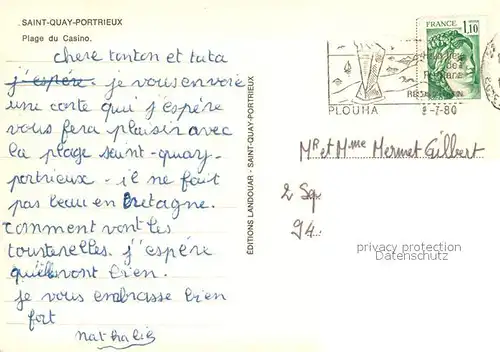 SAINT-QUAY-PORTRIEUX
Plage du Casino.
chere tonton et tata
j'espére. je vous envoie
une carte qui j'espére
vous fera plaisir avec
la plage saint-quay-
portrieux - il ne fait
pas beau en Bretagne.
Comment vont les
tourterelles. j'espére
qu'elles vont bien.
je vous embrasse bien
fort
nathalie
ÉDITIONS LANDOUAR - SAINT-QUAY-PORTRIEUX
FRANCE
1,10
PLOUHA
-7-80
Mr et Mme Mermet Gilbert
2 Sq
94
privacy protection
Datenschutz